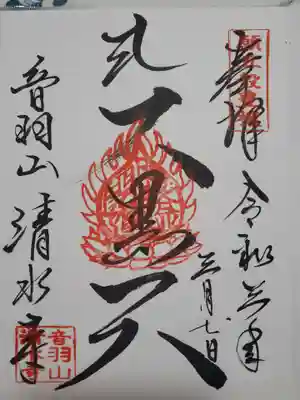 奉拝
令和年
三月七日
大黒天
音羽山 清水寺
音羽山
清水寺